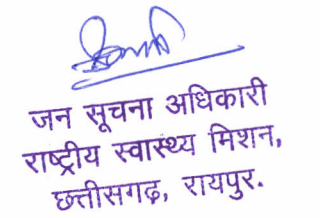 जन सूचना अधिकारी
राष्ट्रीय स्वास्थ्य मिशन,
छत्तीसगढ़, रायपुर.